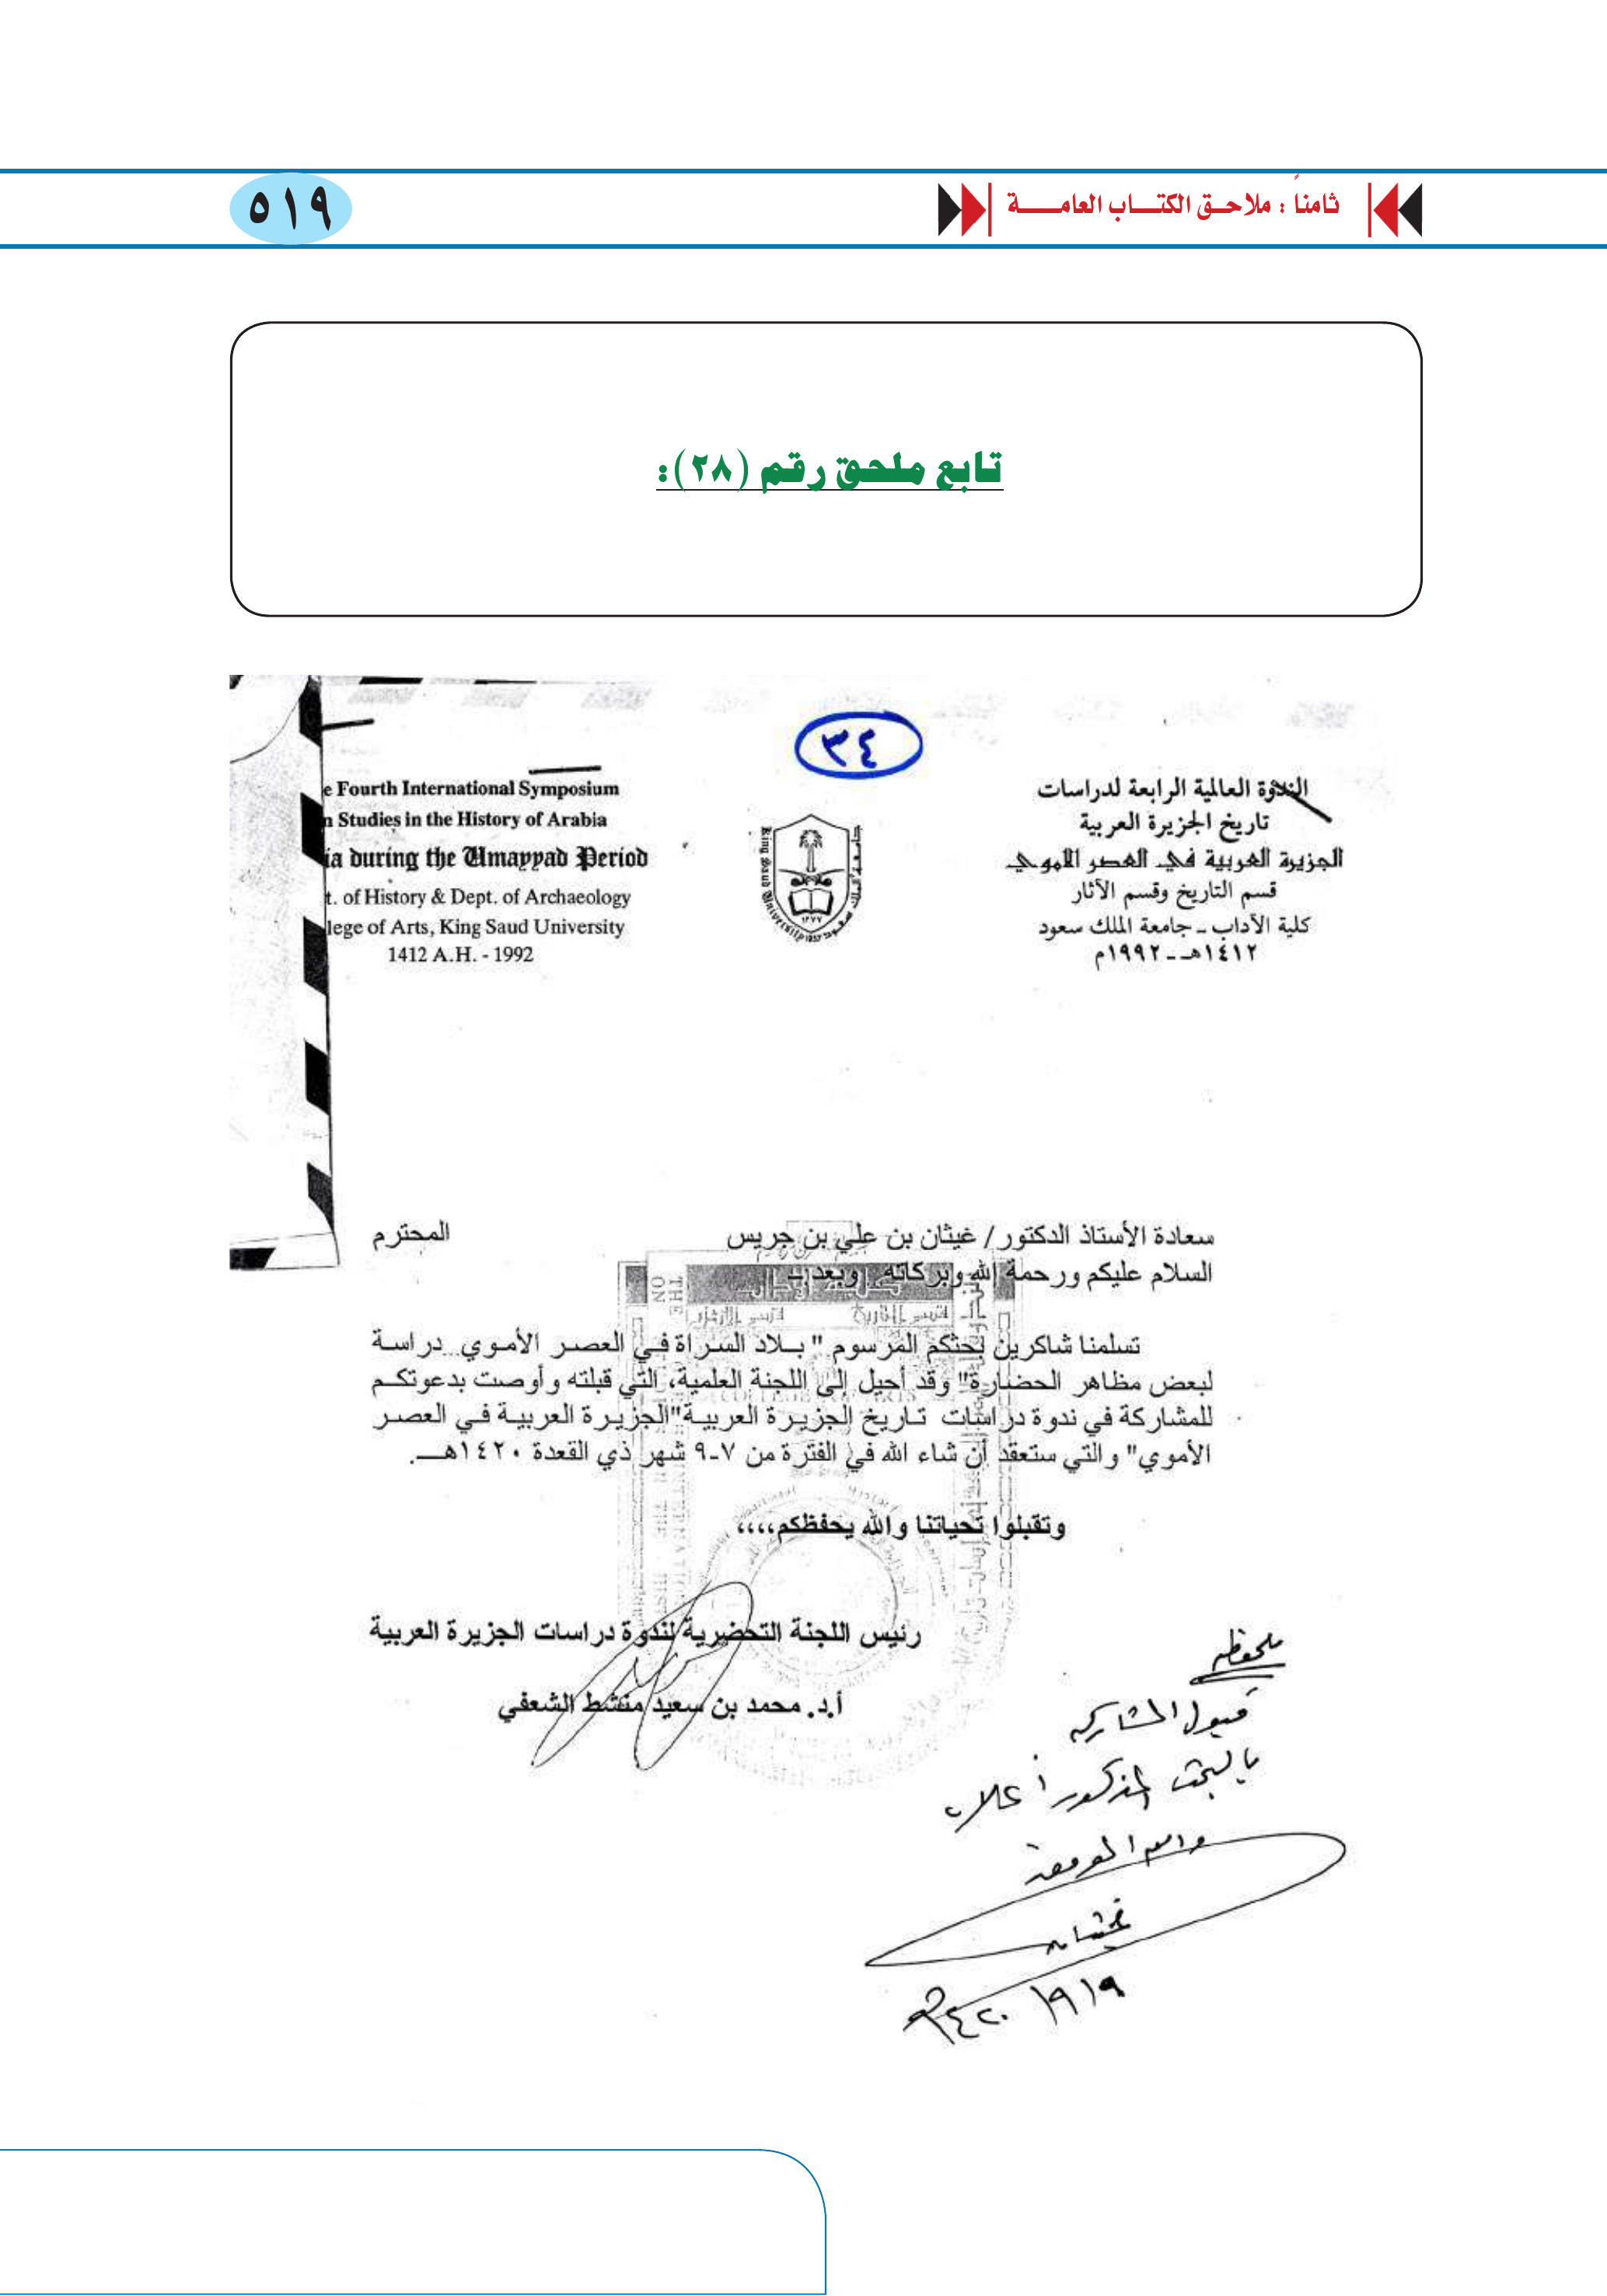 ثامناً : ملاحـق الكتـــاب العامـــــة
٥١٩
تابع ملحق رقم (٢٨):
٣٤
الندوة العالمية الرابعة لدراسات
تاريخ الجزيرة العربية
الجزيرة العربية في العصر الأموي
قسم التاريخ وقسم الآثار
كلية الآداب ـ جامعة الملك سعود
١٤١٢هـ ـ ١٩٩٢م
e Fourth International Symposium
n Studies in the History of Arabia
ia during the Umayyad Period
t. of History & Dept. of Archaeology
lege of Arts, King Saud University
1412 A.H. - 1992
King Saud University
جامعة الملك سعود
١٣٧٧
1957
سعادة الأستاذ الدكتور/ غيثان بن علي بن جريس المحترم
السلام عليكم ورحمة الله وبركاته وبعد
تسلمنا شاكرين بحثكم المرسوم " بـلاد السراة فـي العصـر الأمـوي..دراسـة
لبعض مظاهر الحضارة" وقد أحيل إلى اللجنة العلمية، التي قبلته وأوصت بدعوتكـم
للمشاركة في ندوة دراسات تـاريخ الجزيـرة العربيـة"الجزيـرة العربيـة فـي العصـر
الأموي" والتي ستعقد أن شاء الله في الفترة من ٧-٩ شهر ذي القعدة ١٤٢٠هــ.
وتقبلوا تحياتنا والله يحفظكم،،،،
رئيس اللجنة التحضيرية لندوة دراسات الجزيرة العربية
أ.د. محمد بن سعيد منشط الشعفي
ملحوظه
قبول المشاركه
بالبحث المذكور أعلاه
والله الموفق
غيثان
١٤٢٠/٩/١٩هـ